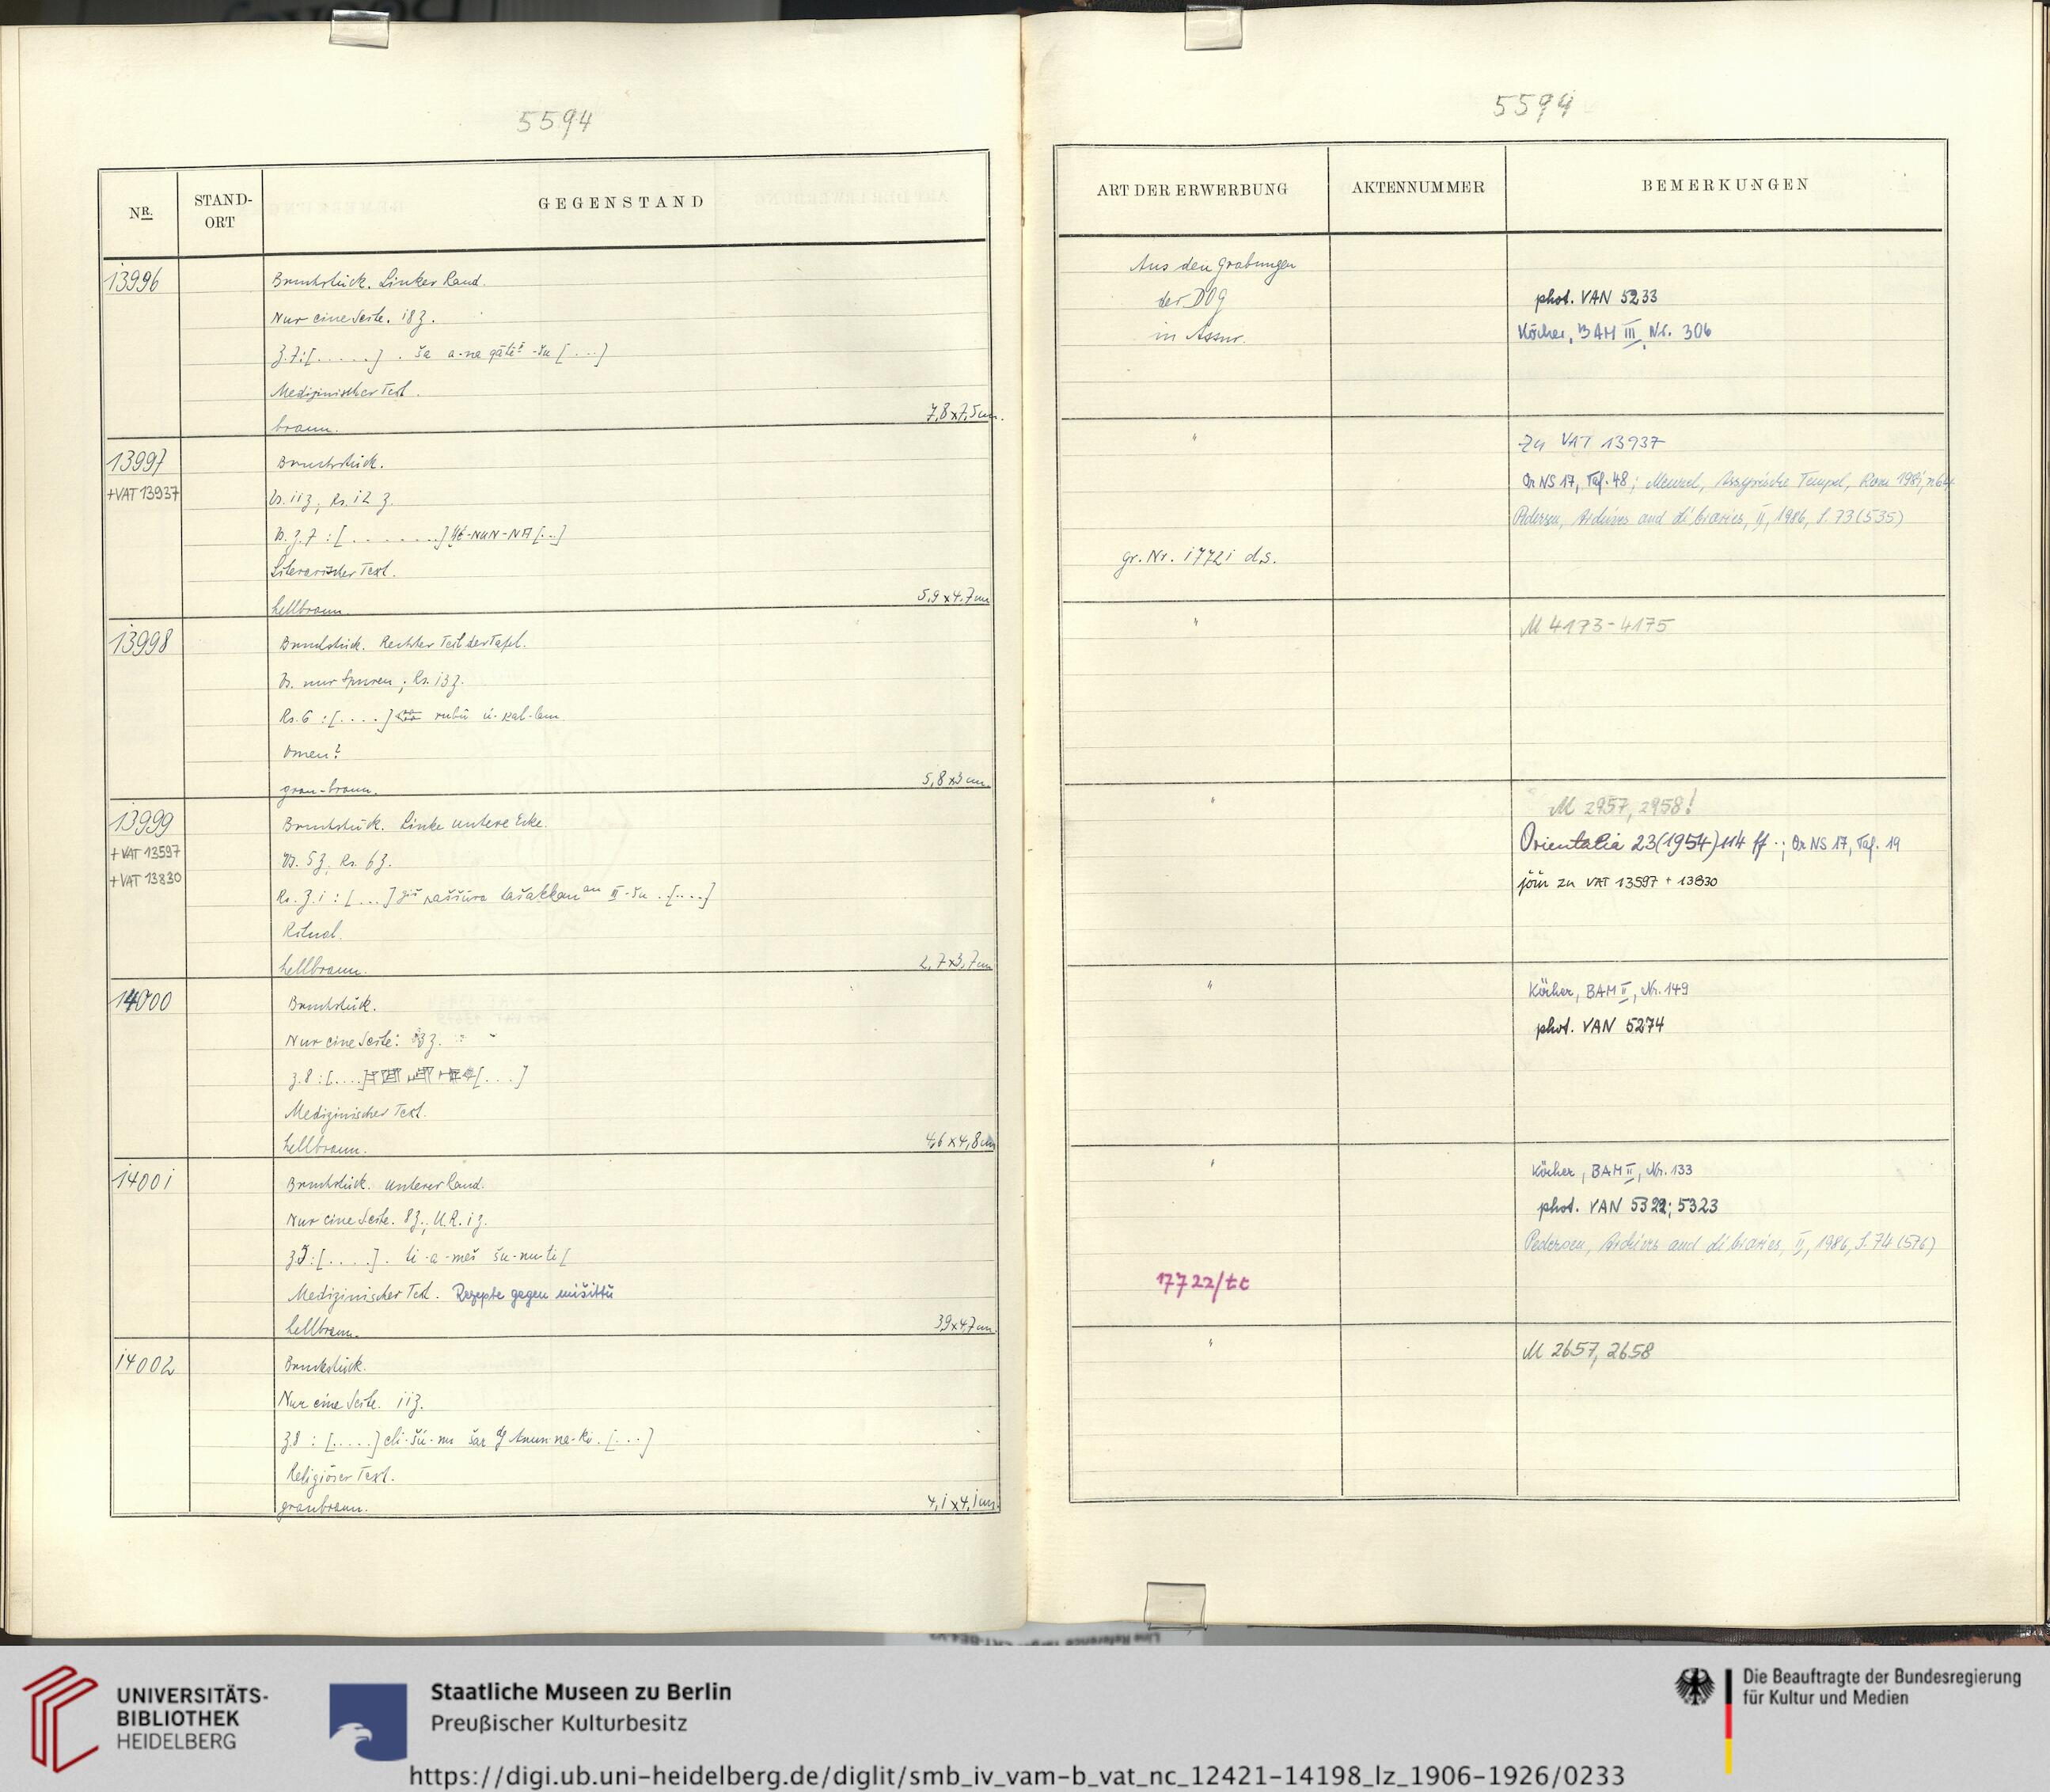 5594
NR.
STAND-
ORT
GEGENSTAND
13996
Bruchstück. Linker Rand.
Nur eine Seite. 18 Z.
Z. 7: [......] . ša a-na qāti -šu [...]
Medizinischer Text.
braun.
7,8 x 7,5 cm.
13997
+VAT 13937
Bruchstück.
Vs. 11 Z, Rs. 12 Z.
Vs. Z. 7 : [........] -NUN-NA [...]
Literarischer Text.
hellbraun.
5,9 x 4,7 cm
13998
Bruchstück. Rechter Teil der Tafel.
Vs. nur Spuren; Rs. 13 Z.
Rs. 6 : [....] rubū ú-kal-lam
Omen?
grau-braun.
5,8 x 3 cm.
13999
+ VAT 13597
+ VAT 13830
Bruchstück. Linke untere Ecke.
Vs. 5 Z, Rs. 6 Z.
Rs. Z. 1 : [...] giš paššūra tašakkan an III-šu . [....]
Ritual.
hellbraun.
2,7 x 3,7 cm
14000
Bruchstück.
Nur eine Seite: 13 Z.
Z. 8 : [....] [...]
Medizinischer Text.
hellbraun.
4,6 x 4,8 cm
14001
Bruchstück. Unterer Rand.
Nur eine Seite. 8 Z., U.R. 1 Z.
Z. 5 : [....] . ti-a-meš šu-nu-ti [
Medizinischer Text. Rezepte gegen mišittu
hellbraun.
3,9 x 4,7 cm
14002
Bruchstück.
Nur eine Seite. 11 Z.
Z. 8 : [.....] eli-šú-nu šar Anun-na-ki . [...]
Religiöser Text.
graubraun.
4,1 x 4,1 cm.
5594
ART DER ERWERBUNG
AKTENNUMMER
BEMERKUNGEN
Aus den Grabungen
der DOG
in Assur.
phot. VAN 5233
Köcher, BAM III, Nr. 306
"
Zu VAT 13937
Or NS 17, Taf. 48; Menzel, Assyrische Tempel, Rom 1981, n 64
Pedersen, Archives and Libraries, II, 1986, S. 73 (535)
Gr. Nr. 17721 ds.
"
M 4173-4175
"
M 2957, 2958!
Orientalia 23 (1954) 114 ff.; Or NS 17, Taf. 19
join zu VAT 13597 + 13830
"
Köcher, BAM II, Nr. 149
phot. VAN 5274
"
Köcher, BAM II, Nr. 133
phot. VAN 5322; 5323
Pedersen, Archives and Libraries, II, 1986, S. 74 (576)
17722/tc
"
M 2657, 2658
UNIVERSITÄTS-
BIBLIOTHEK
HEIDELBERG
Staatliche Museen zu Berlin
Preußischer Kulturbesitz
Die Beauftragte der Bundesregierung
für Kultur und Medien
https://digi.ub.uni-heidelberg.de/diglit/smb_iv_vam-b_vat_nc_12421-14198_lz_1906-1926/0233